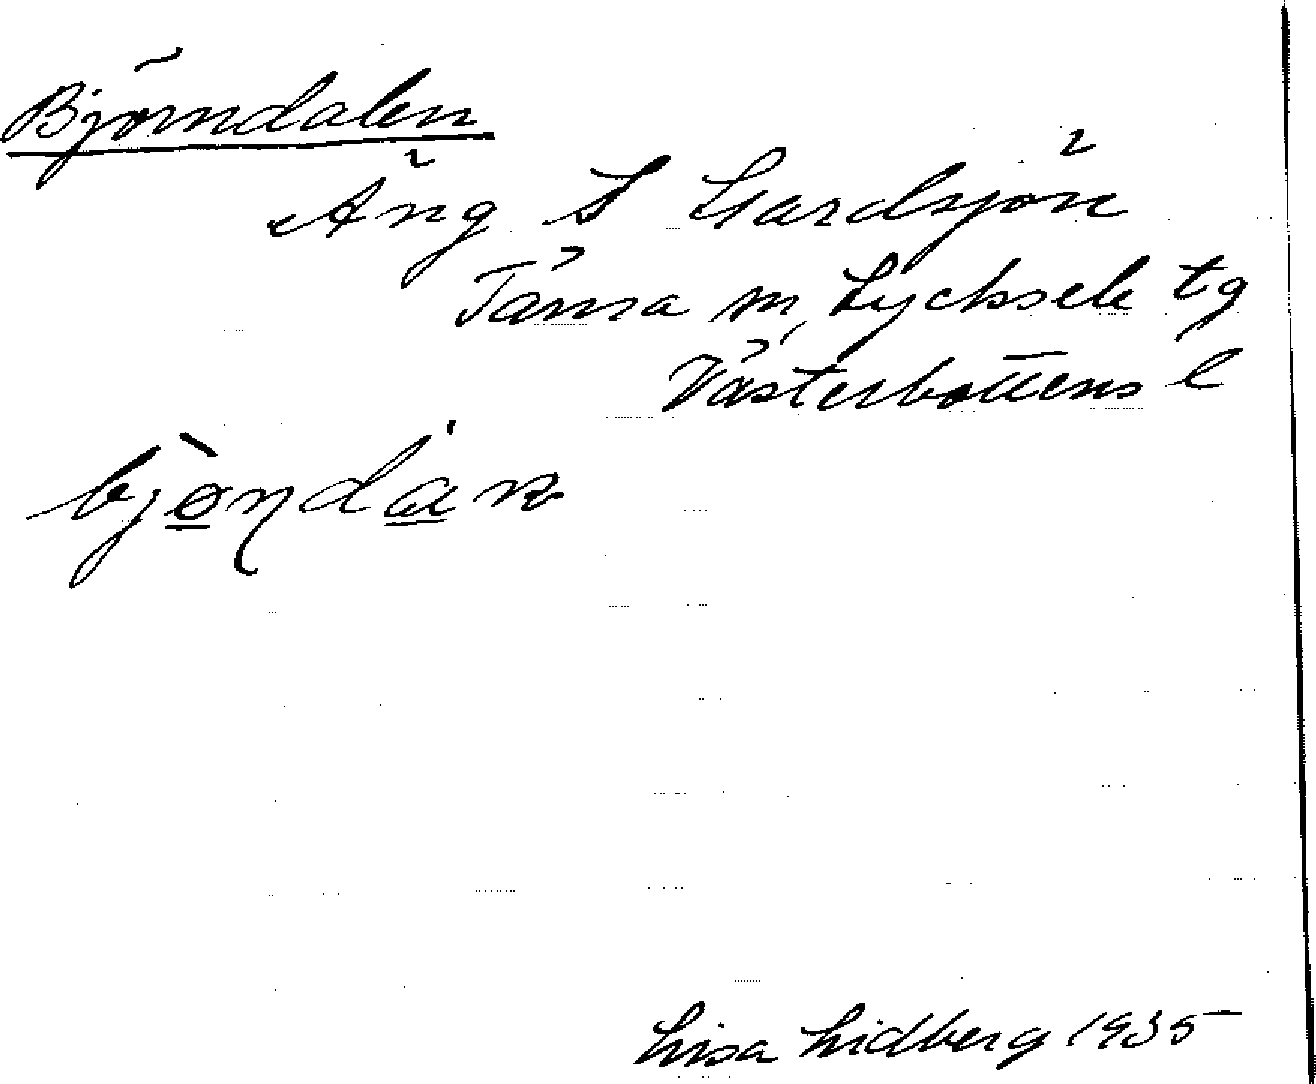 Björndalen
Äng S Gardsjön
Tärna sn, Lycksele tg
Västerbottens l
Lisa Lidberg 1935